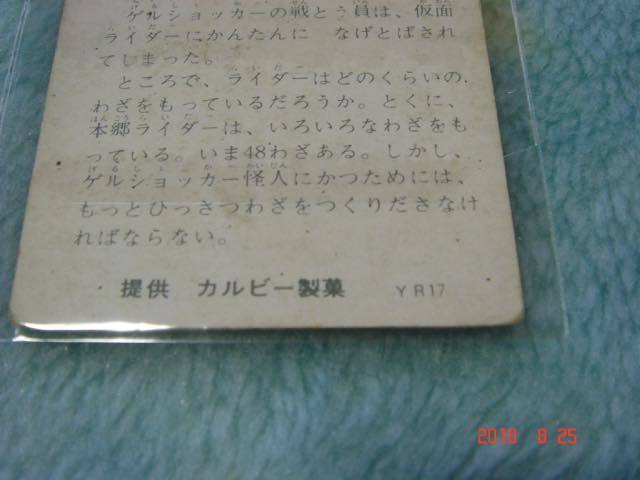 ゲルショッカーの戦とう員は、仮面
ライダーにかんたんに　なげとばされ
てしまった。
ところで、ライダーはどのくらいの
わざをもっているだろうか。とくに、
本郷ライダーは、いろいろなわざをも
っている。いま48わざある。しかし、
ゲルショッカー怪人にかつためには、
もっとひっさつわざをつくりださなけ
ればならない。
提供　カルビー製菓　YR17
2010 8 25